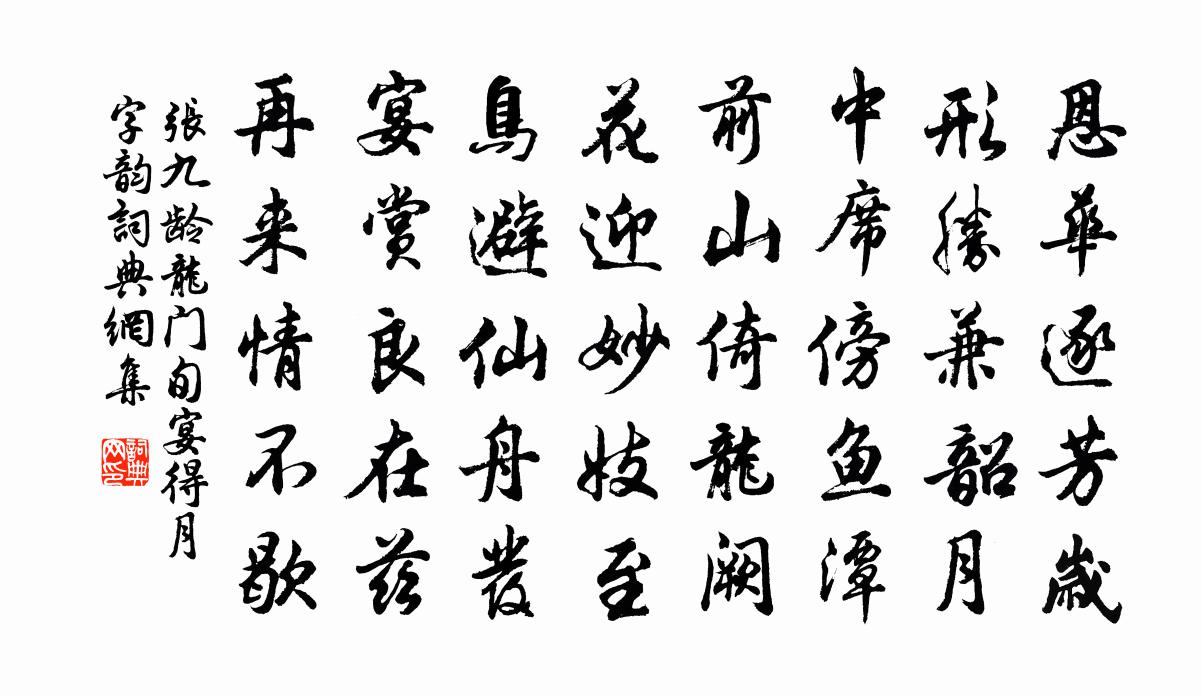 恩華逐芳歲
形勝兼韶月
中席傍魚潭
前山倚龍闕
花迎妙妓至
鳥避仙舟發
宴賞良在茲
再来情不歇
張九龄龍门旬宴得月
字韵詞典網集
詞典
网印